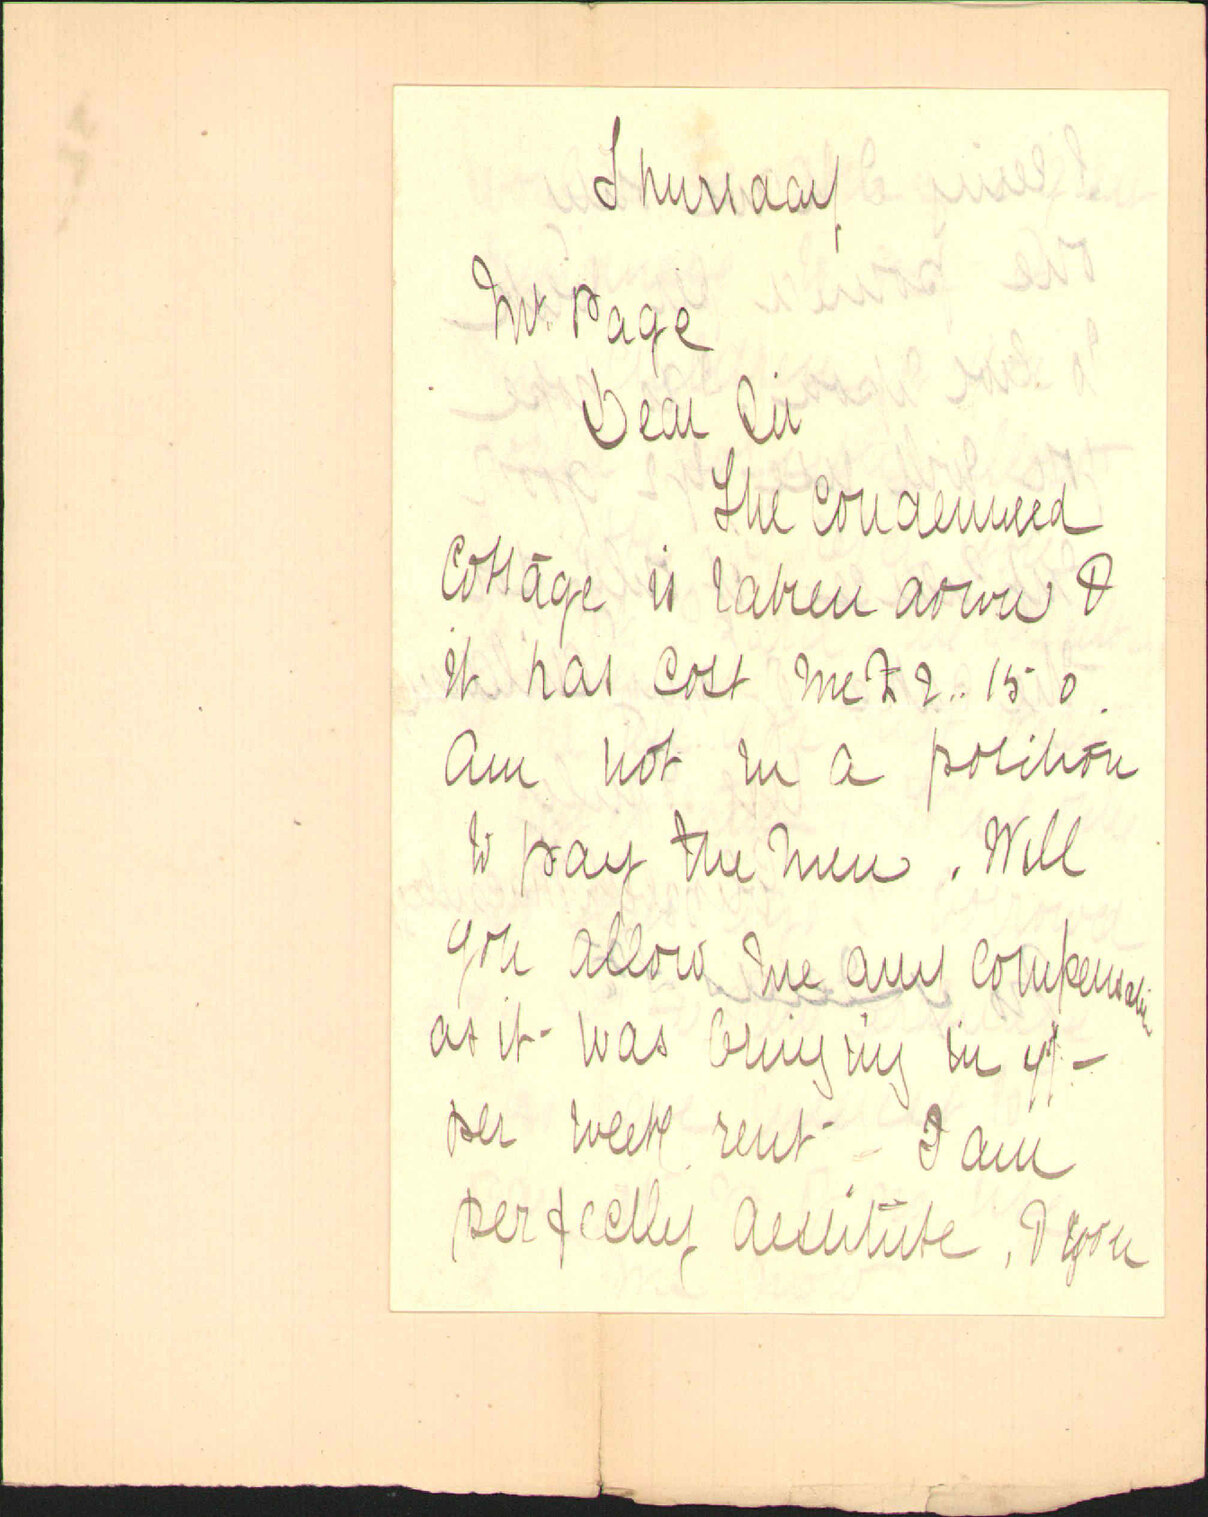 Thursday
Mr. Page
Dear Sir
The Condemned
Cottage is taken down &
it has Cost me £2.. 15 0.
Am not in a position
to pay the men. Will
you allow me any Compensation
as it was bringing in 4/-
per week rent - I am
perfectly destitute, & you